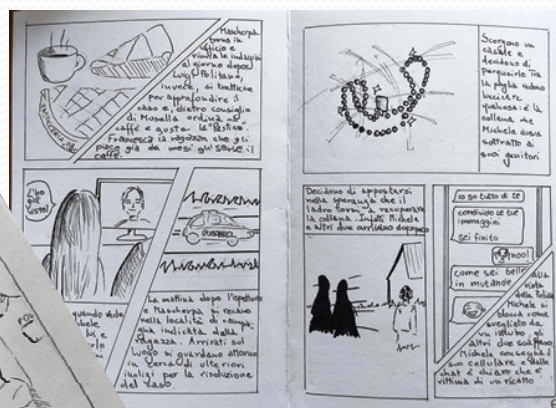 Mascherpa
torna in
ufficio e
rinvia le indagini
al giorno dopo.
Luigi Politano,
invece, si trattiene
per approfondire il
caso e, dietro consiglio
di Musella ordina un
caffè e gusta la "Pastiera".
Francesca la ragazza che gli
piace già da mesi gli serve il
caffè.
L'ho
già
visto!
POLIZIA
quando vede
La mattina dopo l'ispettore
e Mascherpa si recano
nella località di campa-
gna indicata dalla
ragazza. Arrivati sul
luogo si guardano attorno
in cerca di ulteriori
indizi per la risoluzione
del caso
Scorgono un
casale e
decidono di
perquisirlo tra
la paglia vedono
luccicare
qualcosa: è la
collana che
Michele aveva
sottratto ai
suoi genitori
Decidono di appostarsi
nella speranza che il
ladro torni a recuperare
la collana. Infatti Michele
e altri due arrivano dopo poco
io so tutto di te
condivido le tue
immagini
sei finito
nooo!
come sei bello
in mutande
alla
vista
della Polizia
Michele si
blocca come
svegliato da
un incubo gli
altri due scappano
Michele consegna il
suo cellulare e dalle
chat è chiaro che è
vittima di un ricatto